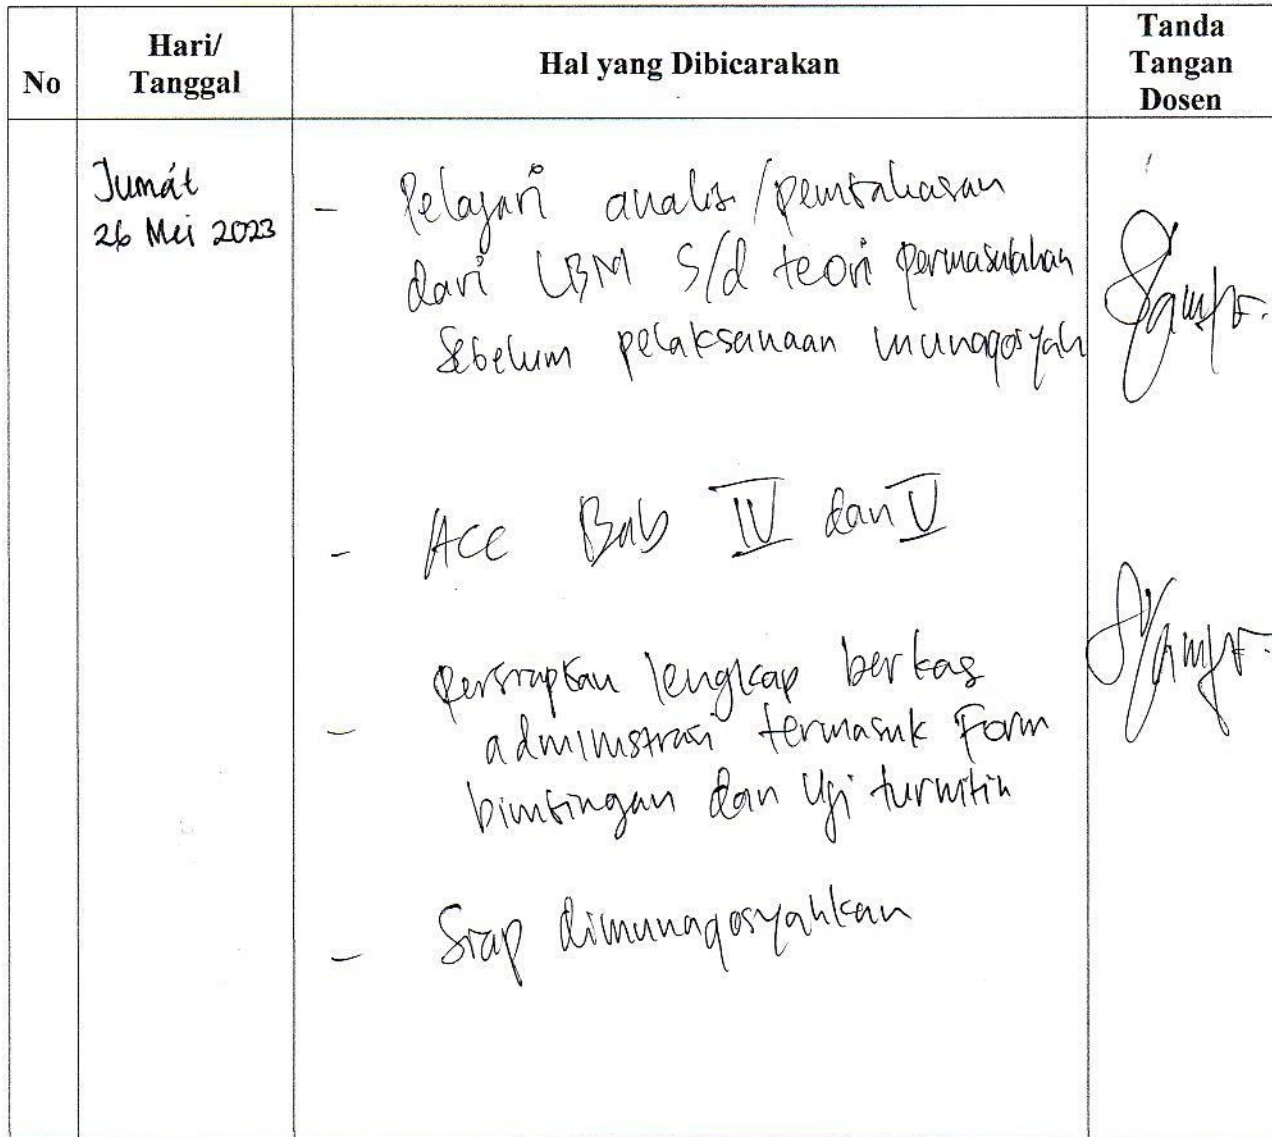 No
Hari/
Tanggal
Hal yang Dibicarakan
Tanda
Tangan
Dosen
Jumát
26 Mei 2023
- Pelajari analis/pembahasan
dari LBM S/d teori permasalahan
Sebelum pelaksanaan munaqosyah
- Acc Bab IV dan V
- persiapkan lengkap berkas
administrasi termasuk Form
bimbingan dan Uji turnitin
- Siap dimunaqosyahkan